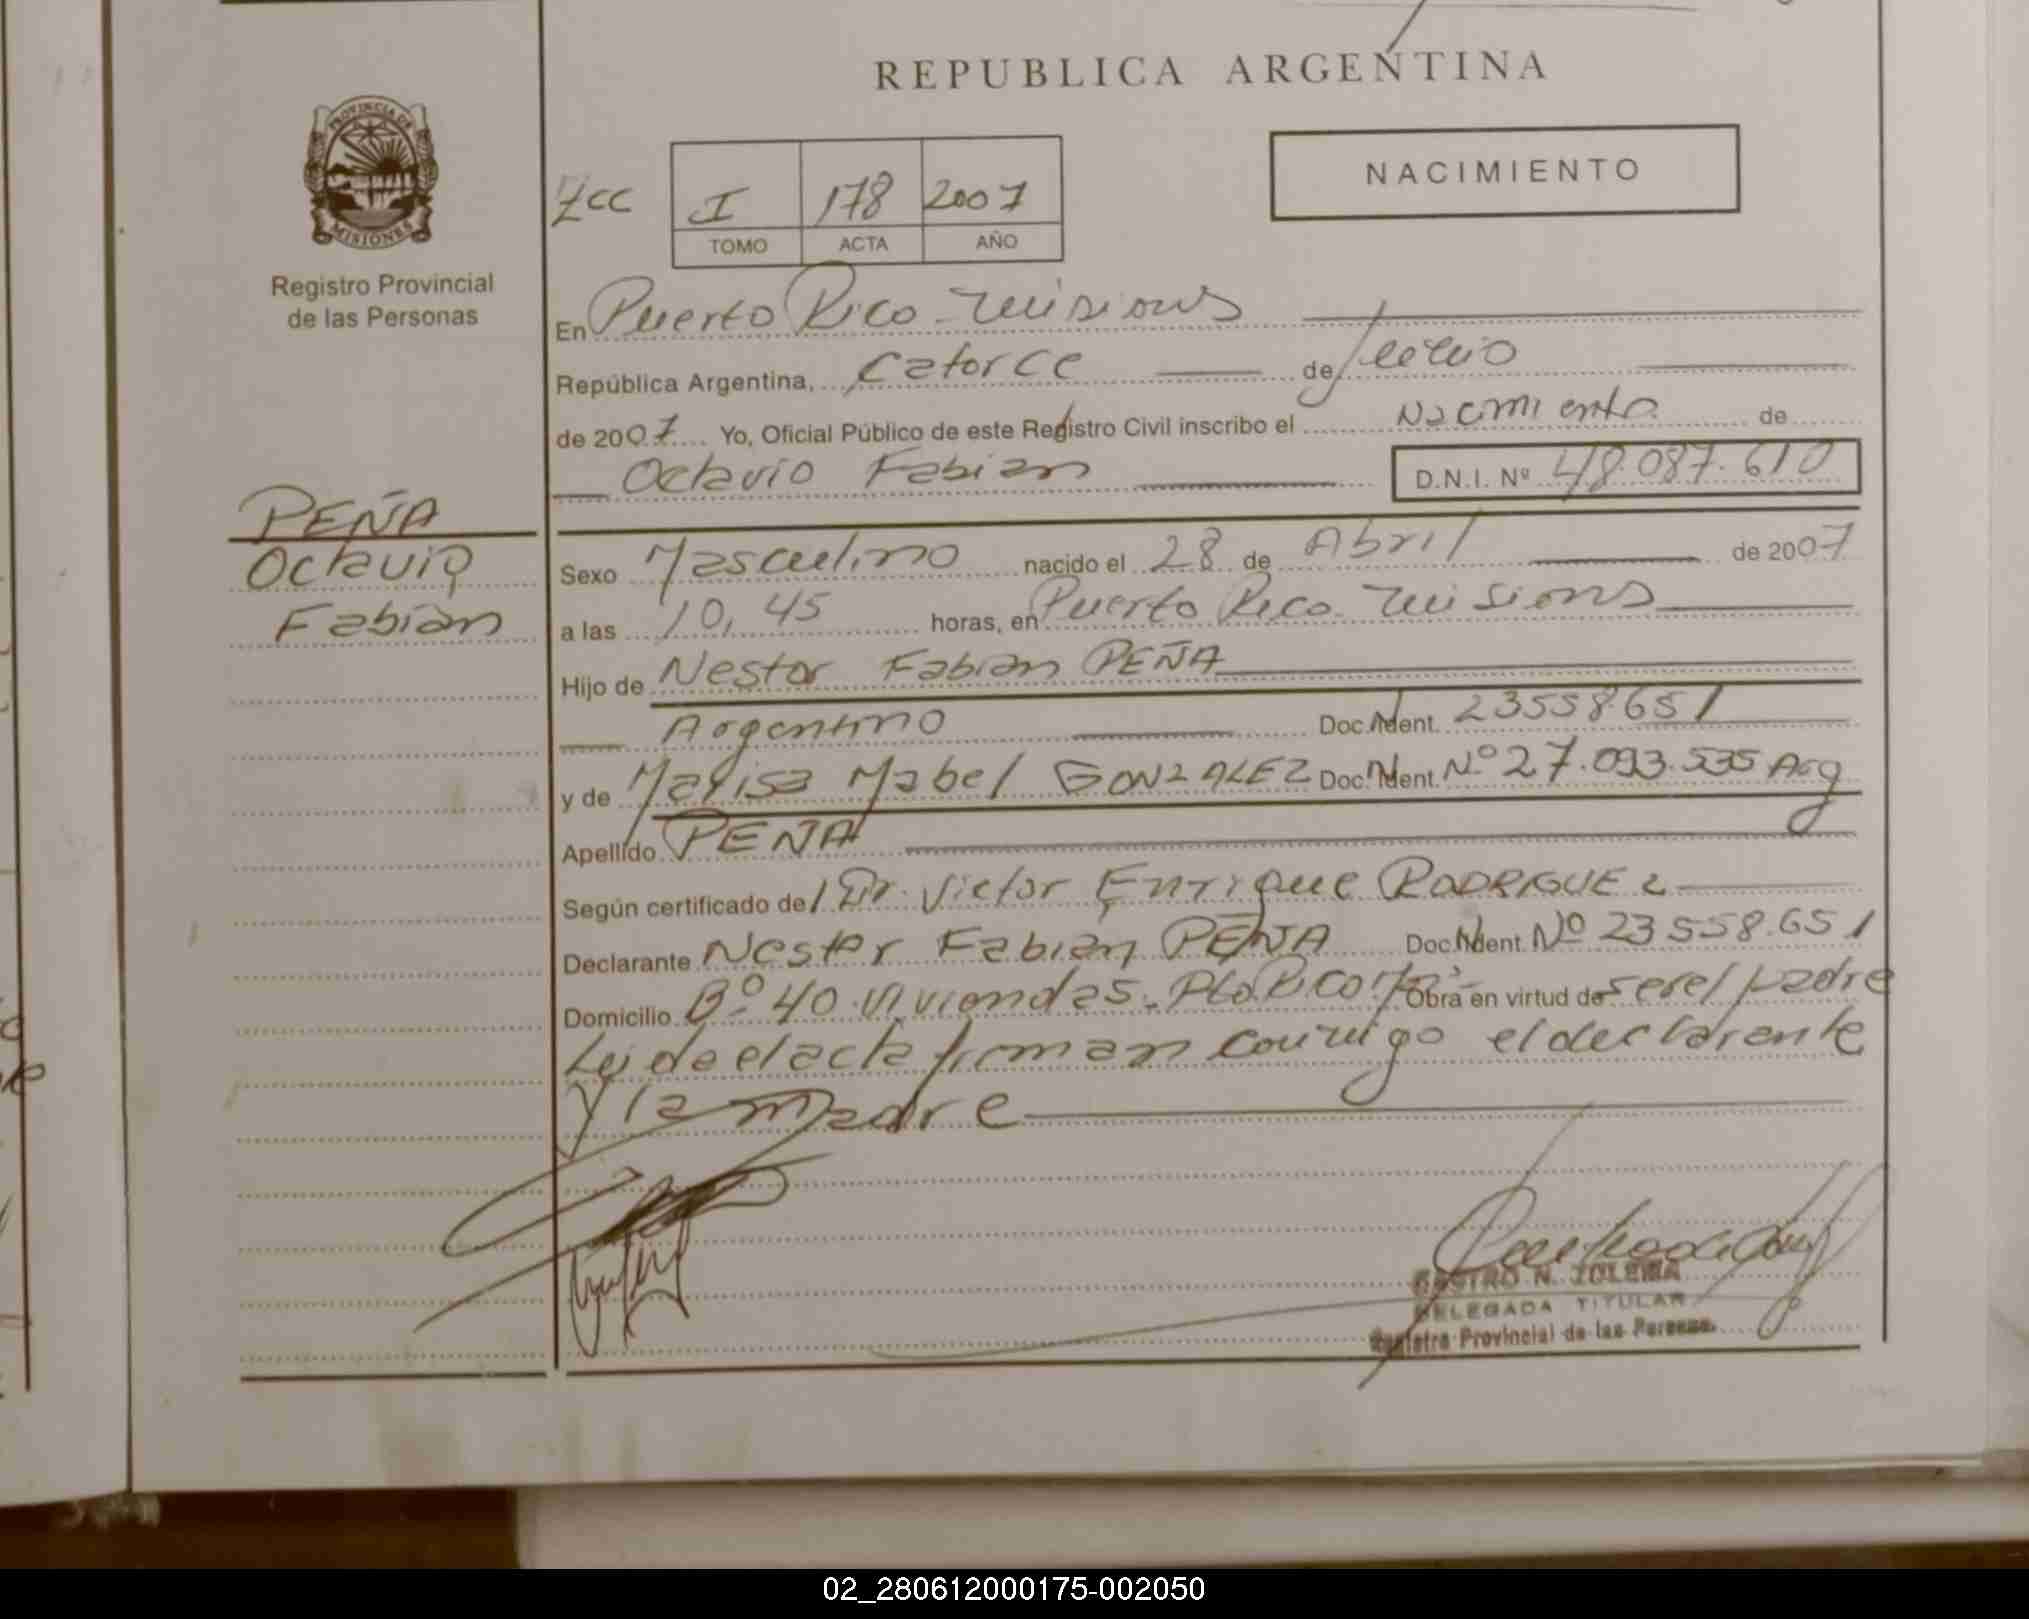 REPUBLICA ARGENTINA
PROVINCIA DE
MISIONES
Registro Provincial
de las Personas
NACIMIENTO
I 178 2007
TOMO ACTA AÑO
En Puerto Rico - Misiones
República Argentina, catorce de Junio
de 2007 Yo, Oficial Público de este Registro Civil inscribo el Nacimiento de
Octavio Fabian D.N.I. Nº 48.087.610
PEÑA
Octavio
Fabián
Sexo Masculino nacido el 28 de Abril de 2007
a las 10,45 horas, en Puerto Rico - Misiones
Hijo de Nestor Fabian PEÑA
Argentino Doc. Ident. 23558.651
y de Marisa Mabel GONZALEZ Doc. Ident. Nº 27.093.535 Arg
Apellido PEÑA
Según certificado del Dr. Victor Enrique RODRIGUEZ
Declarante Nestor Fabian PEÑA Doc. Ident. Nº 23558.651
Domicilio Bº 40 Viviendas - Pto Rico Obra en virtud de ser el padre
Leida el acta firman conmigo el declarante
y la madre
CASTRO N. ZULEMA
DELEGADA TITULAR
Registro Provincial de las Personas
02_280612000175-002050